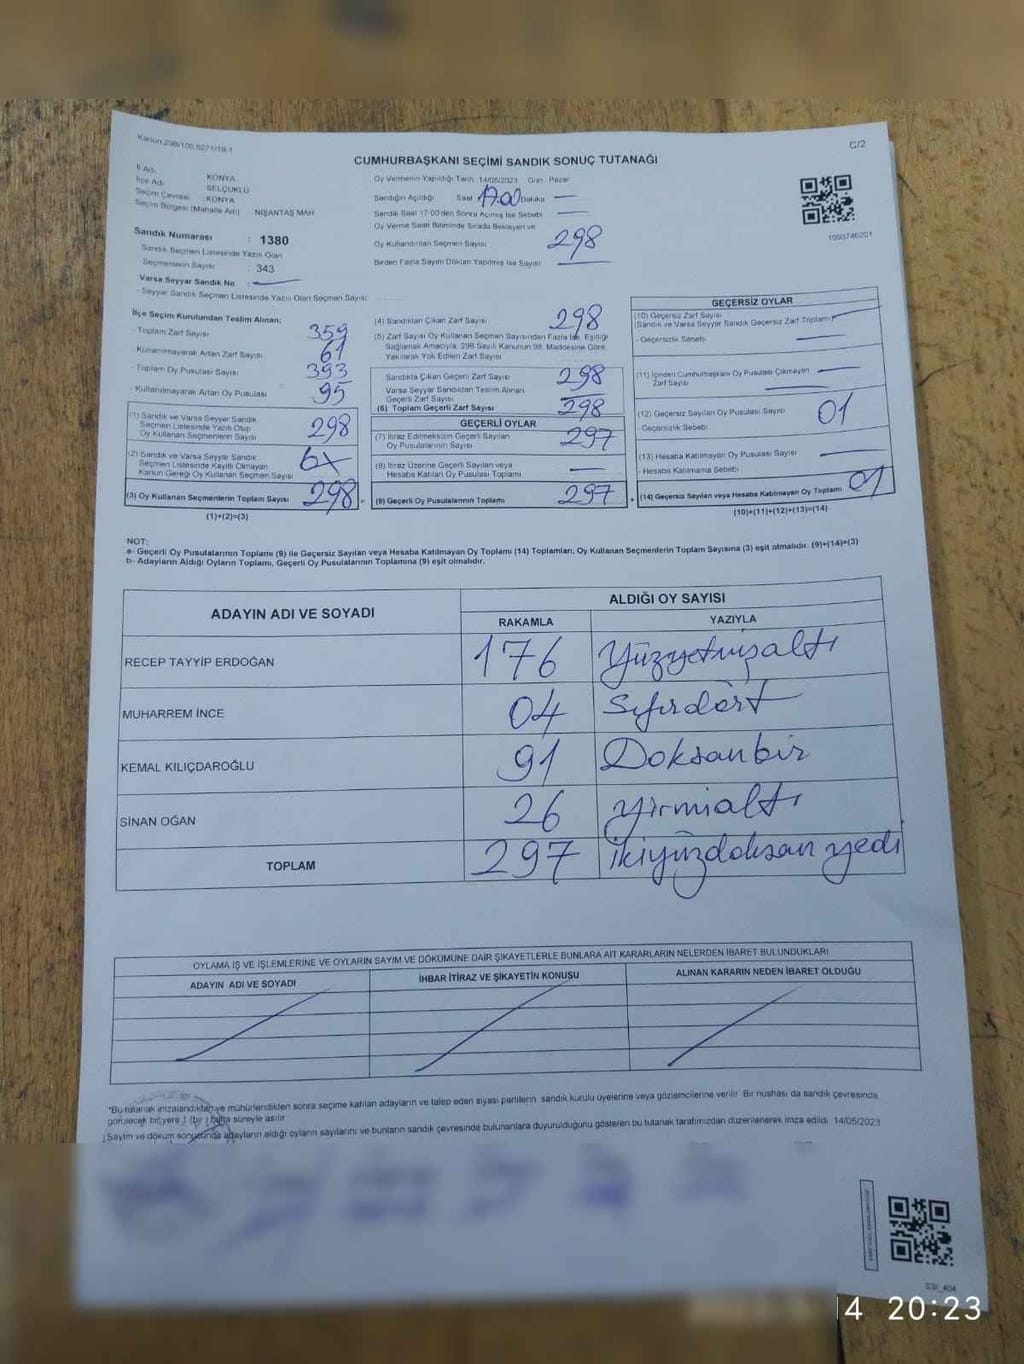 Kanun 298/106,6271/19-1
C/2
CUMHURBAŞKANI SEÇİMİ SANDIK SONUÇ TUTANAĞI
İl Adı KONYA
İlçe Adı SELÇUKLU
Seçim Çevresi : KONYA
Seçim Bölgesi (Mahalle Adı) NİŞANTAŞ MAH
Sandık Numarası : 1380
Sandık Seçmen Listesinde Yazılı Olan
Seçmenlerin Sayısı : 343
Varsa Seyyar Sandık No :
Seyyar Sandık Seçmen Listesinde Yazılı Olan Seçmen Sayısı
Oy Vermenin Yapıldığı Tarih 14/05/2023 Gün : Pazar
Sandığın Açıldığı Saat 17.00 Dakika
Sandık Saat 17:00'den Sonra Açılmış İse Sebebi
Oy Verme Saati Bitiminde Sırada Bekleyen ve
Oy Kullandırılan Seçmen Sayısı 298
Birden Fazla Sayım Döküm Yapılmış İse Sayısı
1093746201
İlçe Seçim Kurulundan Teslim Alınan:
Toplam Zarf Sayısı 359
Kullanılmayarak Artan Zarf Sayısı 61
Toplam Oy Pusulası Sayısı 393
Kullanılmayarak Artan Oy Pusulası 95
(1) Sandık ve Varsa Seyyar Sandık
Seçmen Listesinde Yazılı Olup
Oy Kullanan Seçmenlerin Sayısı 298
(2) Sandık ve Varsa Seyyar Sandık
Seçmen Listesinde Kayıtlı Olmayan
Kanun Gereği Oy Kullanan Seçmen Sayısı
(3) Oy Kullanan Seçmenlerin Toplam Sayısı 298
(1)+(2)=(3)
(4) Sandıktan Çıkan Zarf Sayısı 298
(5) Zarf Sayısı Oy Kullanan Seçmen Sayısından Fazla İse, Eşitliği
Sağlamak Amacıyla, 298 Sayılı Kanunun 98. Maddesine Göre
Yakılarak Yok Edilen Zarf Sayısı
Sandıkta Çıkan Geçerli Zarf Sayısı 298
Varsa Seyyar Sandıktan Teslim Alınan
Geçerli Zarf Sayısı
(6) Toplam Geçerli Zarf Sayısı 298
GEÇERLİ OYLAR
(7) İtiraz Edilmeksizin Geçerli Sayılan
Oy Pusulalarının Sayısı 297
(8) İtiraz Üzerine Geçerli Sayılan veya
Hesaba Katılan Oy Pusulası Toplamı
(9) Geçerli Oy Pusulalarının Toplamı 297
GEÇERSİZ OYLAR
(10) Geçersiz Zarf Sayısı
(Sandık ve Varsa Seyyar Sandık Geçersiz Zarf Toplamı)
- Geçersizlik Sebebi
(11) İçinden Cumhurbaşkanı Oy Pusulası Çıkmayan
Zarf Sayısı
(12) Geçersiz Sayılan Oy Pusulası Sayısı 01
- Geçersizlik Sebebi
(13) Hesaba Katılmayan Oy Pusulası Sayısı
- Hesaba Katılmama Sebebi
(14) Geçersiz Sayılan veya Hesaba Katılmayan Oy Toplamı 01
(10)+(11)+(12)+(13)=(14)
NOT:
a- Geçerli Oy Pusulalarının Toplamı (9) ile Geçersiz Sayılan veya Hesaba Katılmayan Oy Toplamı (14) Toplamları, Oy Kullanan Seçmenlerin Toplam Sayısına (3) eşit olmalıdır. (9)+(14)=(3)
b- Adayların Aldığı Oyların Toplamı, Geçerli Oy Pusulalarının Toplamına (9) eşit olmalıdır.
ADAYIN ADI VE SOYADI ALDIĞI OY SAYISI
RAKAMLA YAZIYLA
RECEP TAYYİP ERDOĞAN 176 Yüzyetmişaltı
MUHARREM İNCE 04 Sıfırdört
KEMAL KILIÇDAROĞLU 91 Doksanbir
SİNAN OĞAN 26 yirmialtı
TOPLAM 297 ikiyüzdoksan yedi
OYLAMA İŞ VE İŞLEMLERİNE VE OYLARIN SAYIM VE DÖKÜMÜNE DAİR ŞİKAYETLERLE BUNLARA AİT KARARLARIN NELERDEN İBARET BULUNDUKLARI
ADAYIN ADI VE SOYADI İHBAR İTİRAZ VE ŞİKAYETİN KONUSU ALINAN KARARIN NEDEN İBARET OLDUĞU
*Bu tutanak imzalandıktan ve mühürlendikten sonra seçime katılan adayların ve talep eden siyasi partilerin sandık kurulu üyelerine veya gözlemcilerine verilir. Bir nüshası da sandık çevresinde
görülecek bir yere 1 (bir) hafta süreyle asılır.
Sayım ve döküm sonucunda adayların aldığı oyların sayılarını ve bunların sandık çevresinde bulunanlara duyurulduğunu gösteren bu tutanak tarafımızdan düzenlenerek imza edildi. 14/05/2023
14 20:23